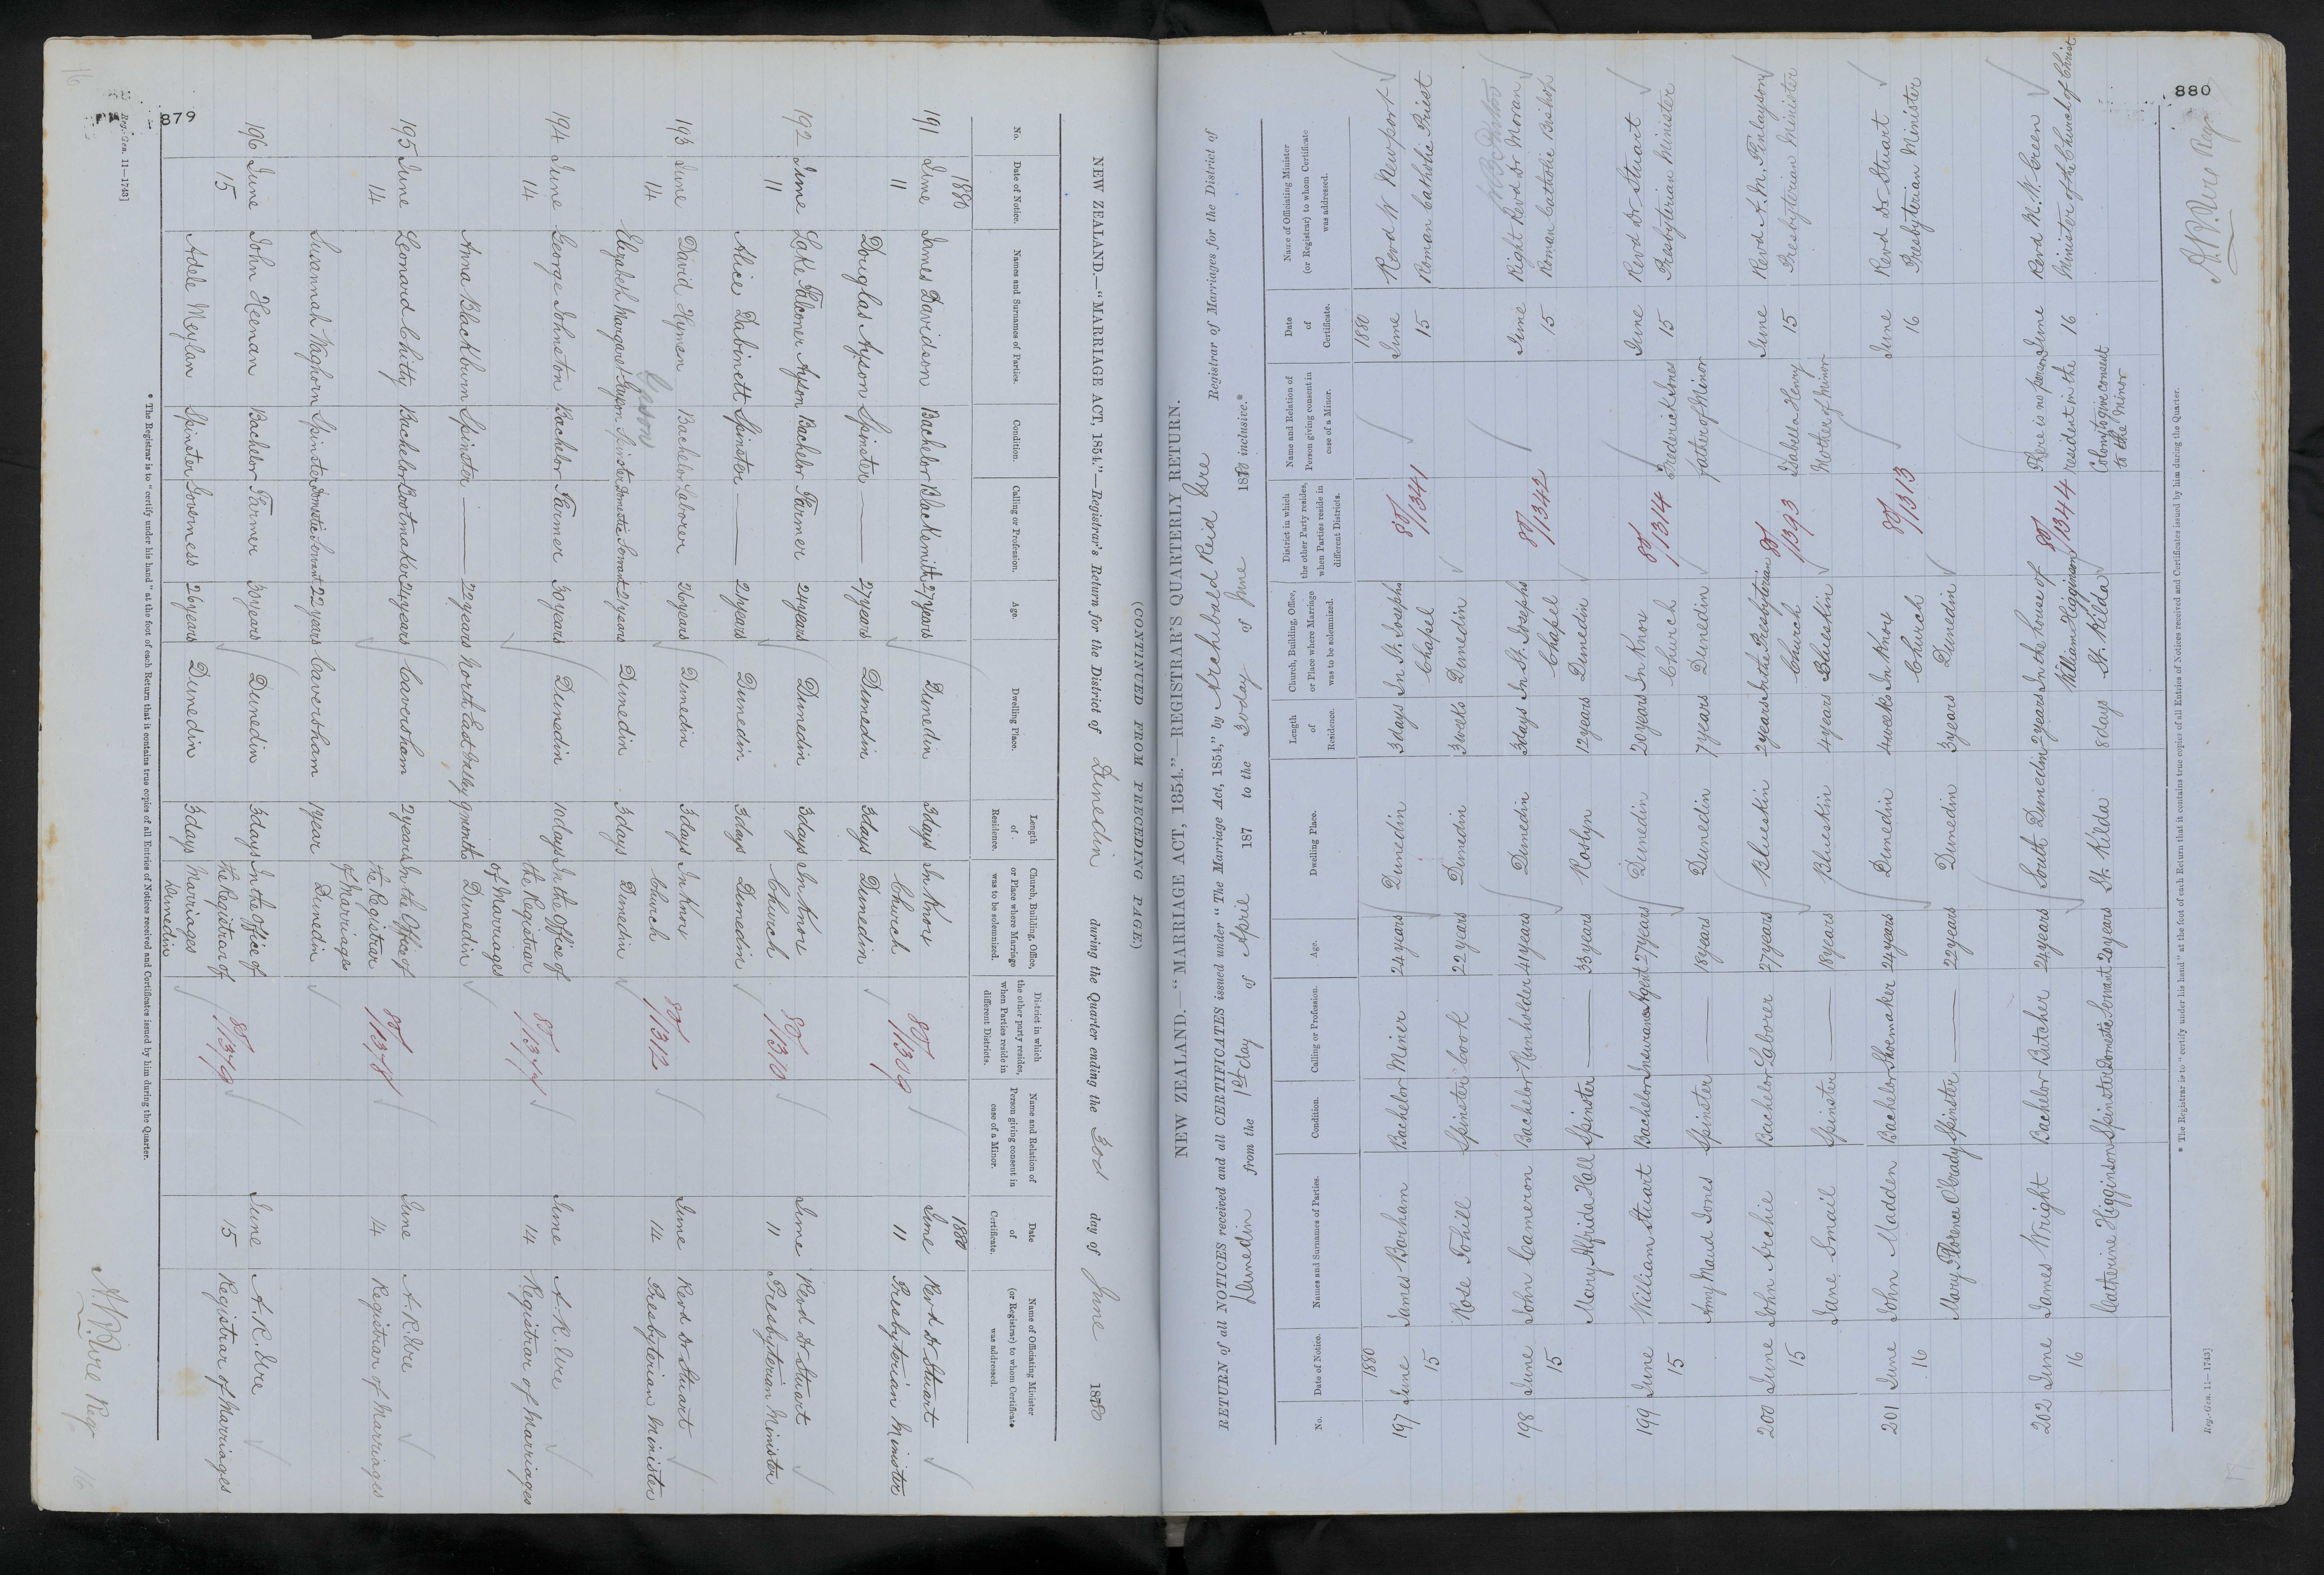 (CONTINUED FROM PRECEDING PAGE.)
NEW ZEALAND.—"MARRIAGE ACT, 1854."—Registrar's Return for the District of Dunedin during the Quarter ending the 30th day of June 1880
No.
Date of Notice.
Names and Surnames of Parties.
Condition.
Calling or Profession.
Age.
Dwelling Place.
Length of Residence.
Church, Building, Office, or Place where Marriage was to be solemnized.
District in which the other party resides, when Parties reside in different Districts.
Name and Relation of Person giving consent in case of a Minor.
Date of Certificate.
Name of Officiating Minister (or Registrar) to whom Certificate was addressed.
1880 1880
191 June James Davidson Bachelor Blacksmith 27 years Dunedin 3 days In Knox 80/1309 June Revd Dr Stuart
11 Church 11 Presbyterian Minister
Douglas Ayson Spinster — 27 years Dunedin 3 days Dunedin
192 June Lake Falconer Ayson Bachelor Farmer 24 years Dunedin 3 days In Knox 80/1310 June Revd Dr Stuart
11 Church 11 Presbyterian Minister
Alice Dabinett Spinster — 21 years Dunedin 3 days Dunedin
193 June David Hymen Bachelor Laborer 26 years Dunedin 3 days In Knox 80/1312 June Revd Dr Stuart
14 Church 14 Presbyterian Minister
Elizabeth Margaret Spinster Domestic Servant 21 years Dunedin 3 days Dunedin
194 June George Johnston Bachelor Farmer 30 years Dunedin 10 days In the Office of 80/1377 June A. R. Ure
14 the Registrar 14 Registrar of Marriages
of Marriages
Anna Blackburn Spinster — 22 years North East Valley 9 months Dunedin
195 June Leonard Chitty Bachelor Bootmaker 24 years Caversham 2 years In the Office of 80/1378 June A. R. Ure
14 the Registrar 14 Registrar of Marriages
of Marriages
Susannah Waghorn Spinster Domestic Servant 22 years Caversham 1 year Dunedin
196 June John Heenan Bachelor Farmer 30 years Dunedin 3 days In the Office of 80/1379 June A. R. Ure
15 the Registrar of 15 Registrar of Marriages
Adele Meylan Spinster Governess 26 years Dunedin 3 days Marriages
Dunedin
879
* The Registrar is to "certify under his hand" at the foot of each Return that it contains true copies of all Entries of Notices received and Certificates issued by him during the Quarter.
Reg.-Gen. 11—1743]
A R Ure Regr
16
NEW ZEALAND.—"MARRIAGE ACT, 1854."—REGISTRAR'S QUARTERLY RETURN.
RETURN of all NOTICES received and all CERTIFICATES issued under "The Marriage Act, 1854," by Archibald Reid Ure Registrar of Marriages for the District of
Dunedin from the 1st day of April 187 to the 30 day of June 1880 inclusive.*
No.
Date of Notice.
Names and Surnames of Parties.
Condition.
Calling or Profession.
Age.
Dwelling Place.
Length of Residence.
Church, Building, Office, or Place where Marriage was to be solemnized.
District in which the other Party resides, when Parties reside in different Districts.
Name and Relation of Person giving consent in case of a Minor.
Date of Certificate.
Name of Officiating Minister (or Registrar) to whom Certificate was addressed.
1880 1880
197 June James Barham Bachelor Miner 24 years Dunedin 3 days In St. Josephs 80/1341 June Revd W Newport
15 Chapel 15 Roman Catholic Priest
Rose Tohill Spinster Cook 22 years Dunedin 3 weeks Dunedin
198 June John Cameron Bachelor Runholder 41 years Dunedin 3 days In St. Josephs 80/1342 June Right Revd Dr Moran
15 Chapel 15 Roman Catholic Bishop
Mary Alfrida Hall Spinster — 33 years Roslyn 12 years Dunedin
199 June William Stuart Bachelor Insurance Agent 27 years Dunedin 20 years In Knox 80/1314 Frederick Jones June Revd Dr Stuart
15 Church father of Minor 15 Presbyterian Minister
Amy Maud Jones Spinster — 18 years Dunedin 7 years Dunedin
200 June John Archie Bachelor Laborer 27 years Blueskin 2 years In the Presbyterian 80/1393 Isabella Henry June Revd A. M. Finlayson
15 Church Mother of Minor 15 Presbyterian Minister
Jane Smail Spinster — 18 years Blueskin 4 years Blueskin
201 June John Madden Bachelor Shoemaker 24 years Dunedin 4 weeks In Knox 80/1313 June Revd Dr Stuart
16 Church 16 Presbyterian Minister
Mary Florence O'Grady Spinster — 22 years Dunedin 3 years Dunedin
202 June James Wright Bachelor Butcher 24 years South Dunedin 2 years In the house of 80/1344 There is no person June Revd M. W. Green
16 William Higginson resident in the 16 Minister of the Church of Christ
Catherine Higginson Spinster Domestic Servant 20 years St. Kilda 8 days St. Kilda Colony to give consent
to the Minor
880
* The Registrar is to "certify under his hand" at the foot of each Return that it contains true copies of all Entries of Notices received and Certificates issued by him during the Quarter.
Reg.-Gen. 11—1743]
A R Ure Regr
17